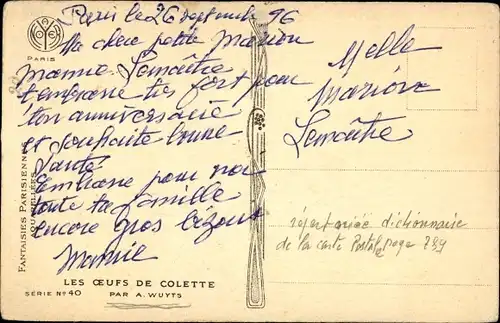 Paris le 26 septembre 96
PARIS
Ma chere petite Marion
Mamie Lemaitre
t'embrasse tres fort pour
ton anniversaire
et souhaite bonne
santé
Embrasse pour moi
toute ta famille
encore gros bizous
Mamie
Melle
Marion
Lemaitre
FANTAISIES PARISIENNES
AQUARELLÉES
répertoriée dictionnaire
de la carte Postale page 289
LES ŒUFS DE COLETTE
SÉRIE Nº 40 PAR A. WUYTS